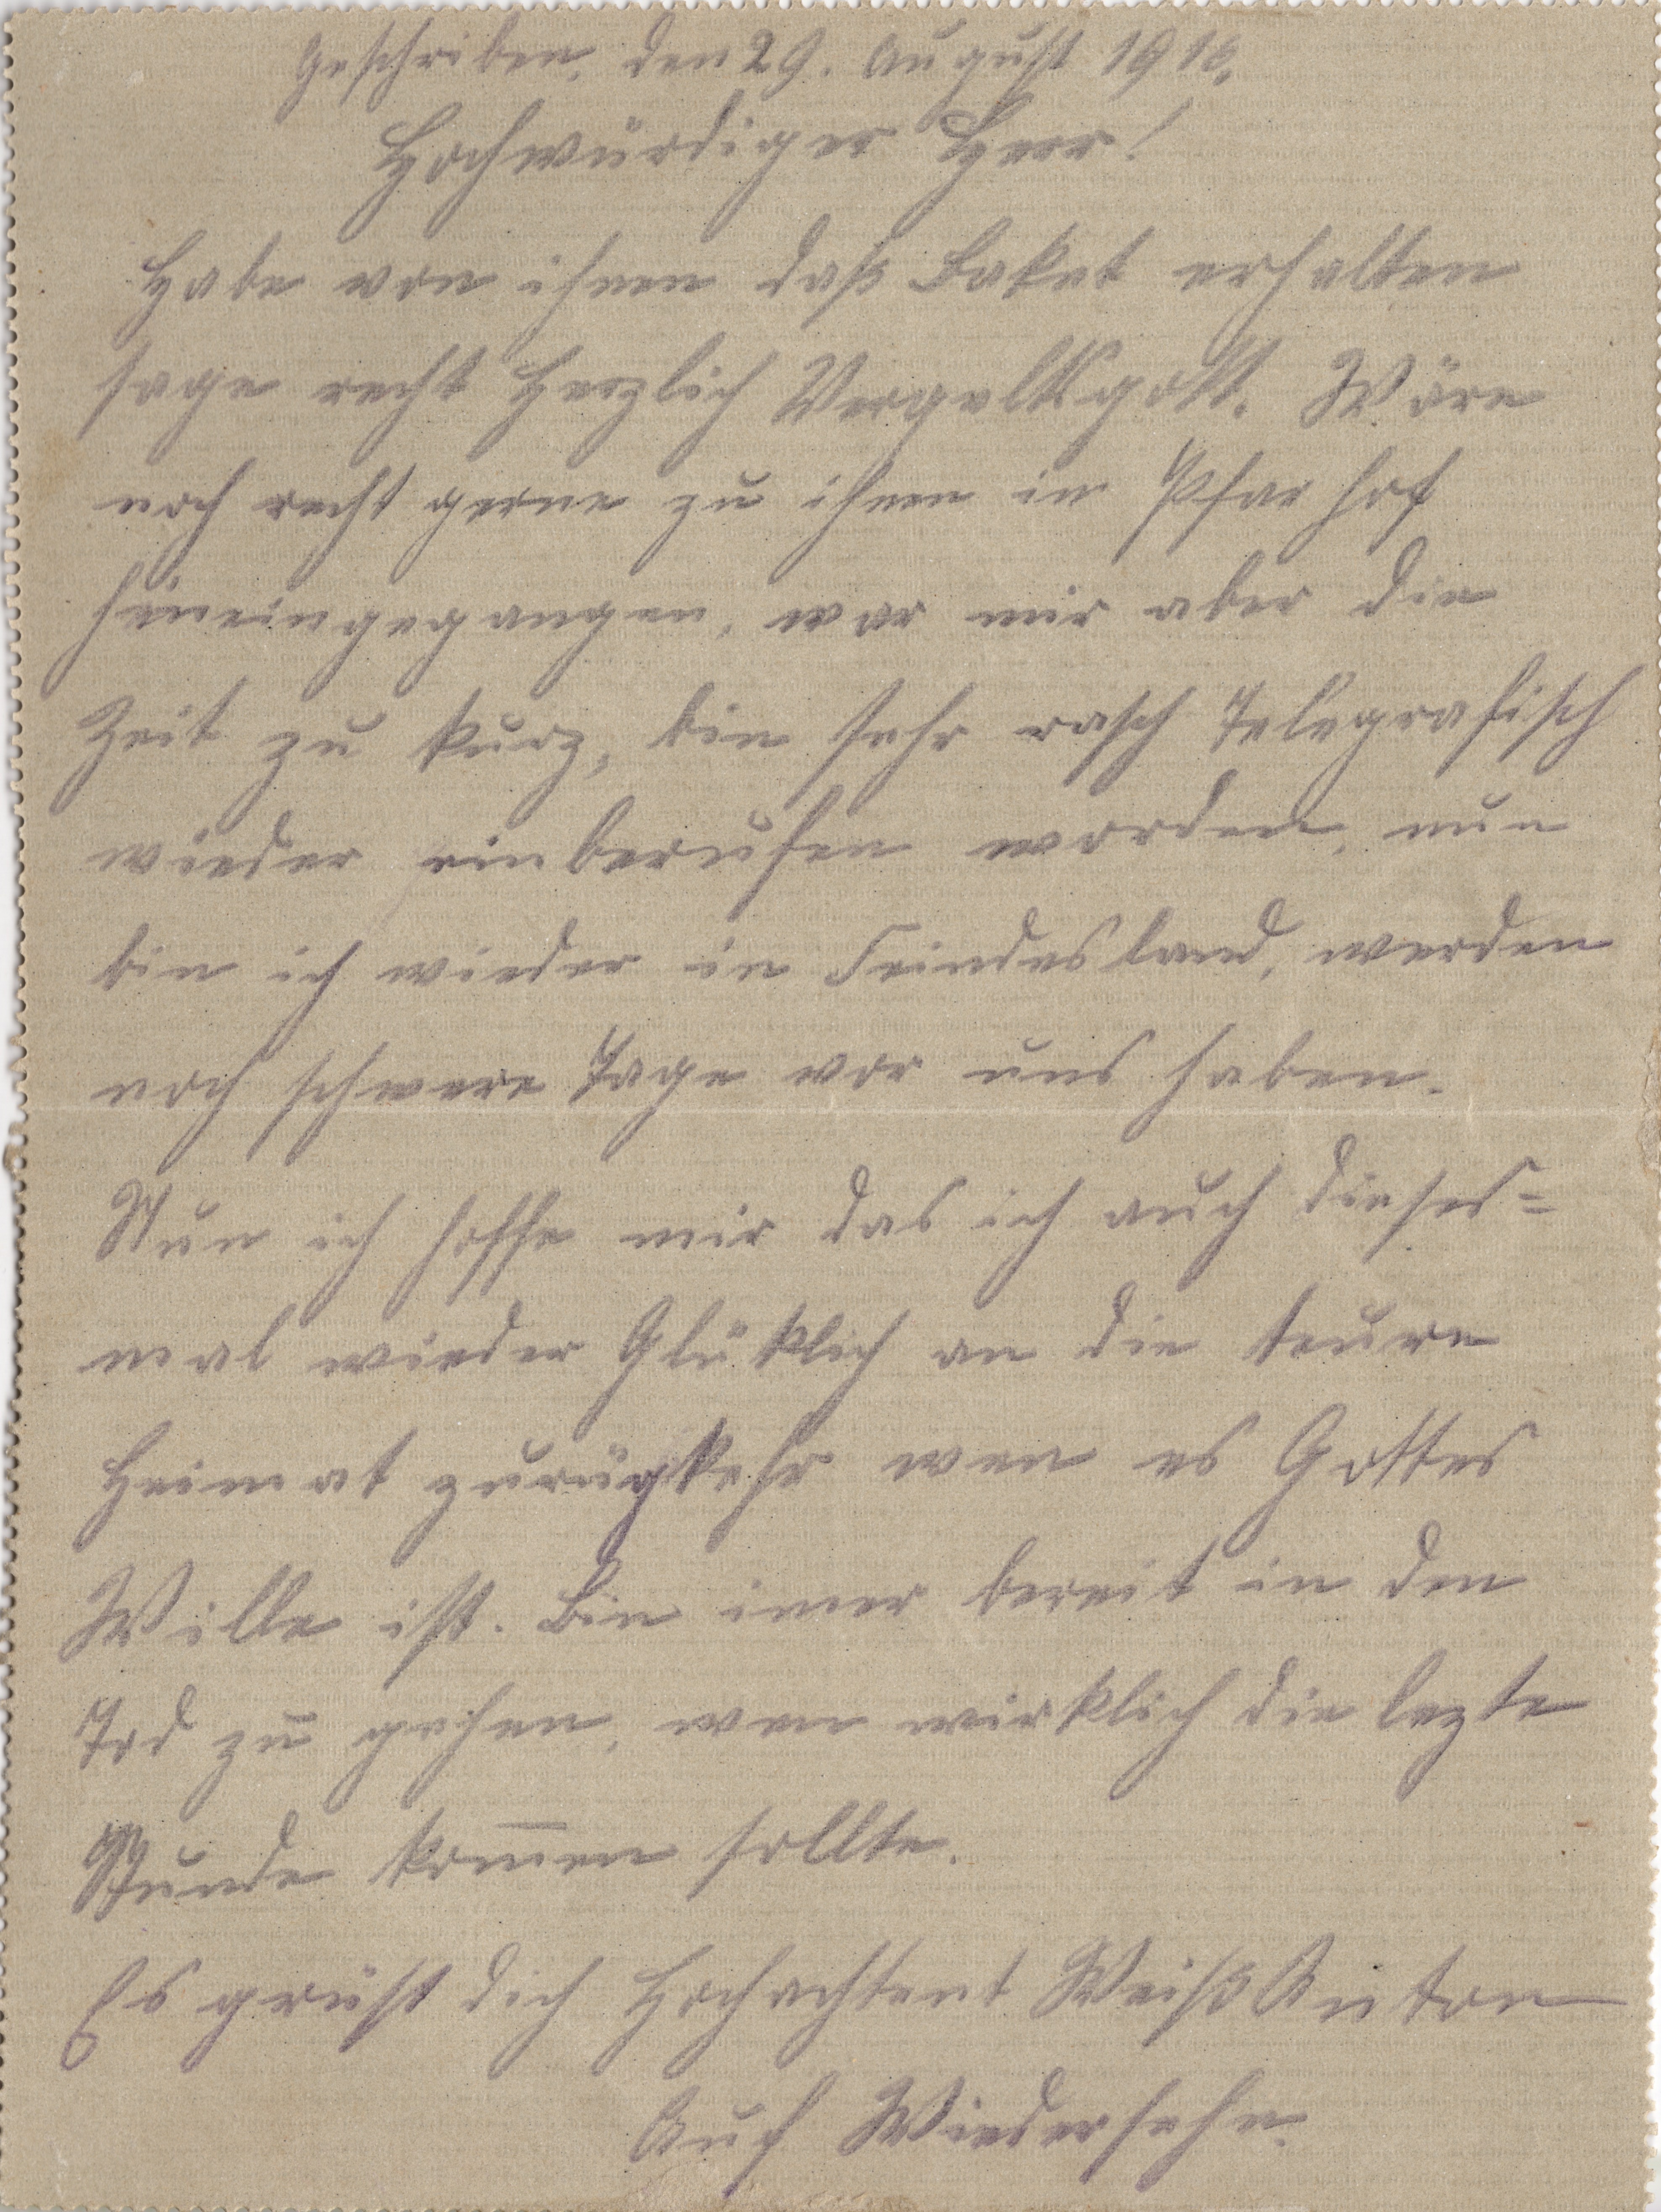 Geschriben, den 29. August 1916.
Hochwürdiger Herr!
Habe von ihnen daß Baket erhalten
sage recht Herzlich Vergeltsgott. Wäre
noch recht gerne zu ihnen in Pfarhof
hineingegangen, war mir aber die
Zeit zu kurz, bin sehr rasch Telegrafisch
wieder einberufen worden, nun
bin ich wieder in Feindesland, werden
noch schwere Tage vor uns haben.
Nun ich hoffe mir das ich auch dieses=
mal wieder Glüklich an die teure
Heimat zurügkehr wen es Gottes
Wille ist. Bin imer bereit in den
Tod zu gehen, wen wirklich die lezte
Stunde kom̅en sollte.
Es grüst dich Hochachtent Weiß Anton
Auf Wiedersehn.